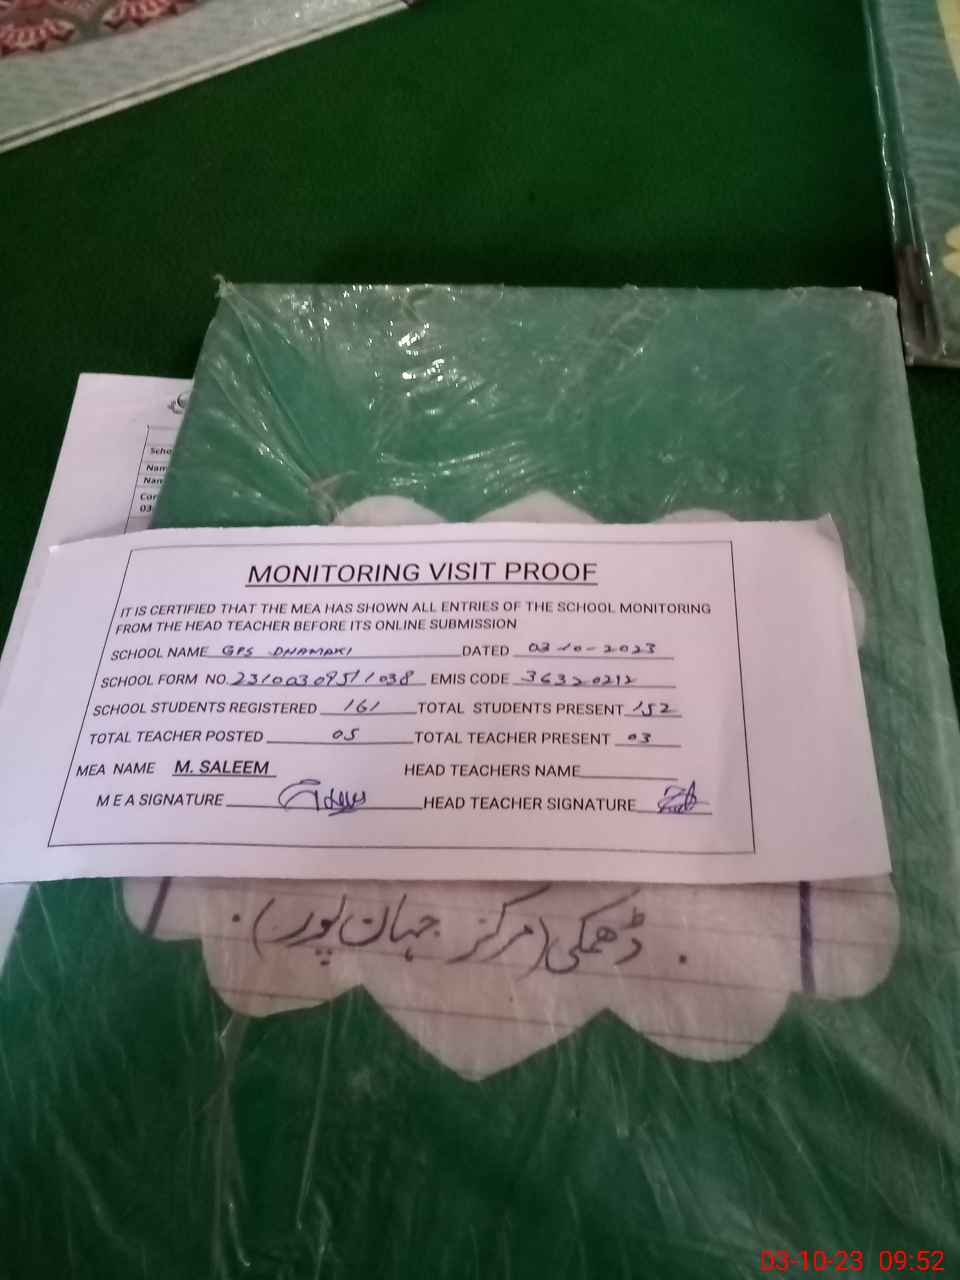 Scho
Nam
Nam
Con
03-
MONITORING VISIT PROOF
IT IS CERTIFIED THAT THE MEA HAS SHOWN ALL ENTRIES OF THE SCHOOL MONITORING
FROM THE HEAD TEACHER BEFORE ITS ONLINE SUBMISSION
SCHOOL NAME GPS DHAMAKI DATED 03-10-2023
SCHOOL FORM NO. 23100309511038 EMIS CODE 36320212
SCHOOL STUDENTS REGISTERED 161 TOTAL STUDENTS PRESENT 152
TOTAL TEACHER POSTED 05 TOTAL TEACHER PRESENT 03
MEA NAME M. SALEEM HEAD TEACHERS NAME
M E A SIGNATURE HEAD TEACHER SIGNATURE
ڈھمکی (مرکز جہان پور)
03-10-23 09:52